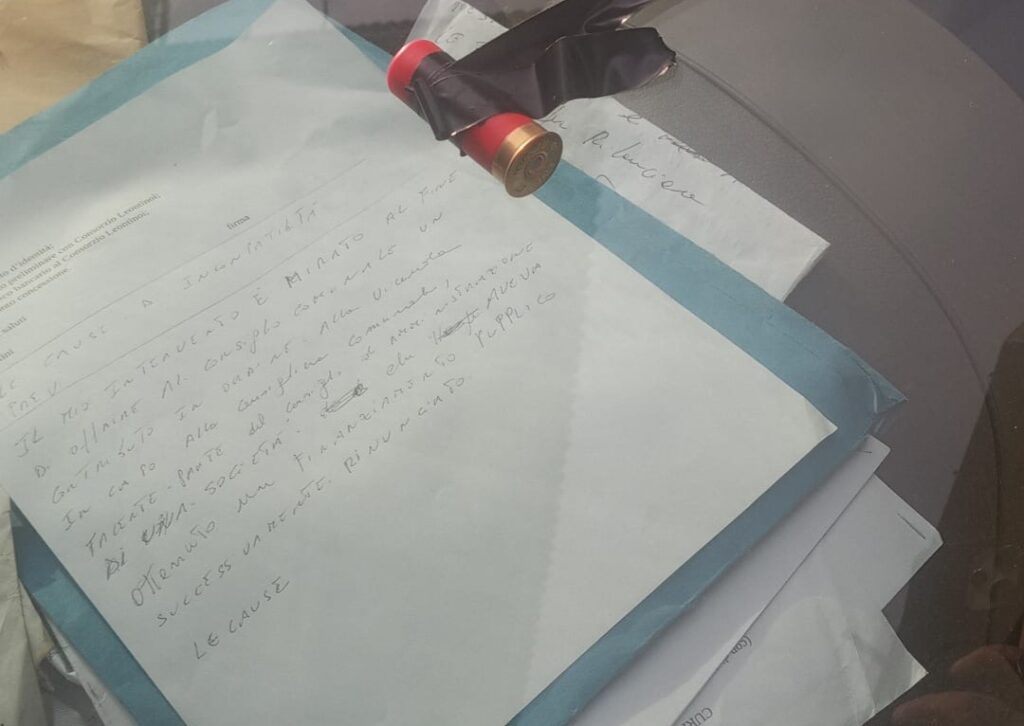 d'identità;
preliminare con Consorzio Leontinoi;
bancario al Consorzio Leontinoi;
concessione
saluti
firma
LE CAUSE D INCOMPATIBILTÀ
IL MIO INTERVENTO È MIRATO AL FINE
DI OFFRIRE AL CONSIGLIO COMUNALE UN
CONTRIBUTO IN ORDINE ALLA VICENDA
IN CAPO ALLA CONSIGLIERA COMUNALE,
FACENTE PARTE DEL CONSIGLIO DI AMMINISTRAZIONE
DI UNA SOCIETÀ CHE AVEVA
OTTENUTO UN FINANZIAMENTO PUPPLICO
SUCCESSIVAMENTE RINUNCIATO.
LE CAUSE